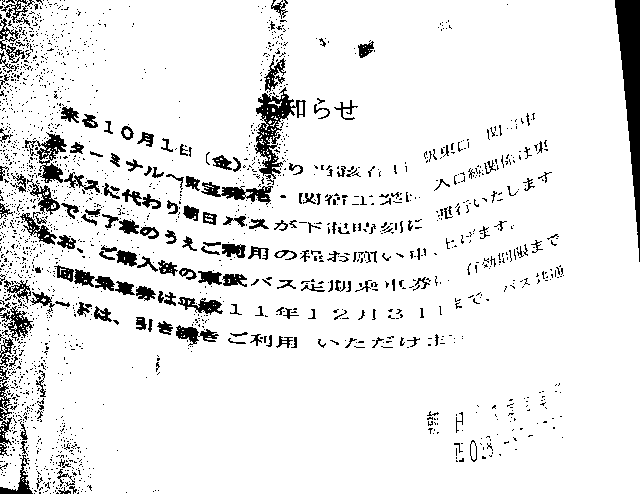 お知らせ
来る10月1日（金）より当該春日 駅東口 関宿中
央ターミナル〜東宝珠花・関宿工業団 入口線関係は東
武バスに代わり朝日バスが下記時刻に 運行いたします
のでご了承のうえご利用の程お願い申 上げます。
なお、ご購入済の東武バス定期乗車券は 有効期限まで
・回数乗車券は平成11年12月31日まで、バス共通
カードは、引き続きご利用 いただけます
朝日